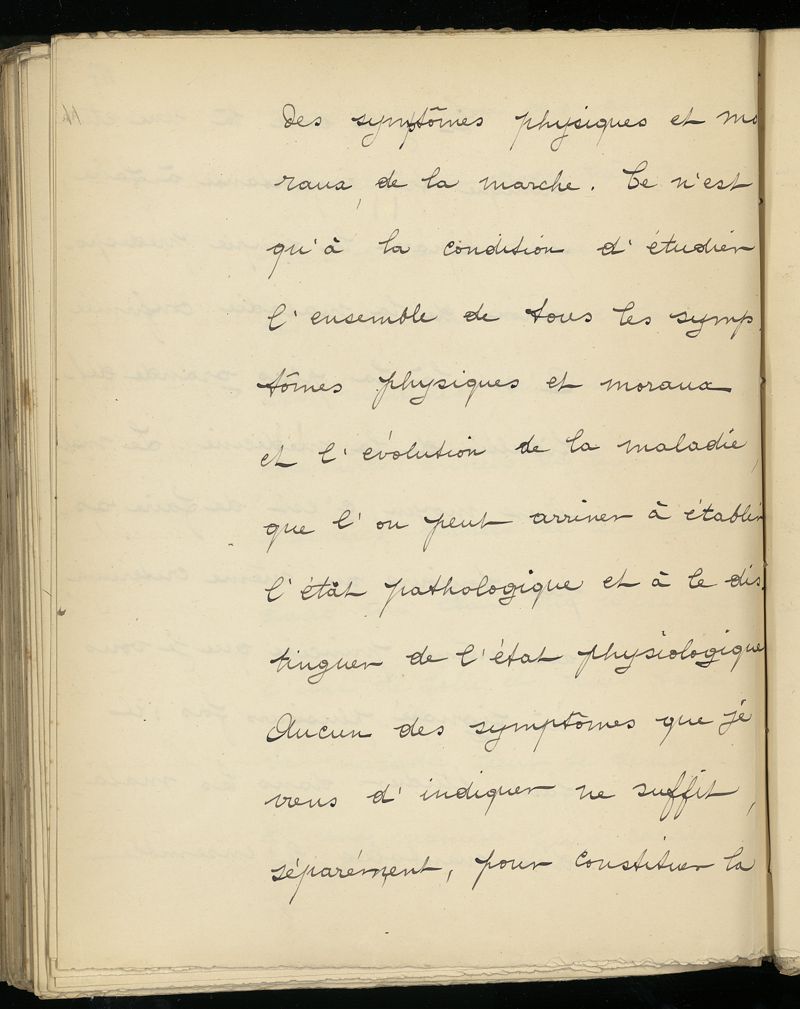 des symptômes physiques et mo
raux, de la marche. Ce n'est
qu'à la condition d'étudier
l'ensemble de tous les symp
tômes physiques et moraux
et l'évolution de la maladie,
que l'on peut arriver à établir
l'état pathologique et à le dis
tinguer de l'état physiologique
Aucun des symptômes que je
viens d'indiquer ne suffit,
séparément, pour constituer la